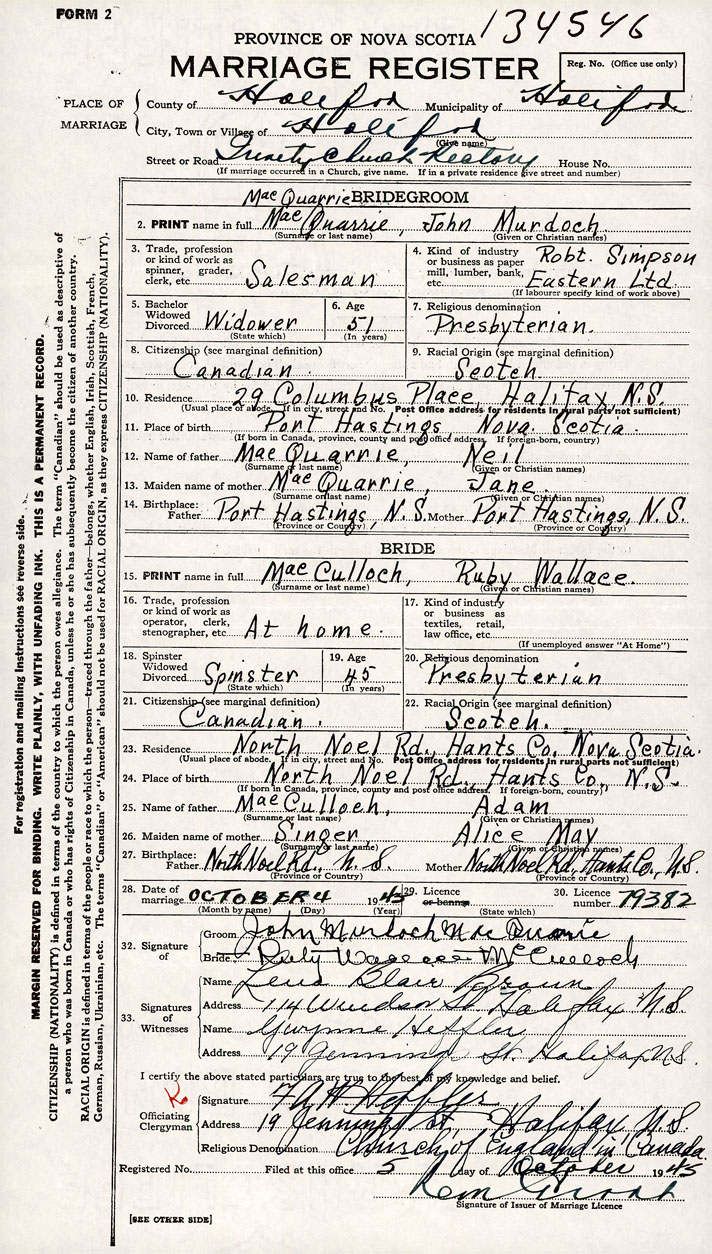 FORM 2
134546
PROVINCE OF NOVA SCOTIA
MARRIAGE REGISTER
Reg. No. (Office use only)
PLACE OF MARRIAGE
County of Halifax Municipality of Halifax
City, Town or Village of Halifax
(Give name)
Street or Road Trinity Church Rectory House No.
(If marriage occurred in a Church, give name. If in a private residence give street and number)
MacQuarrie BRIDEGROOM
2. PRINT name in full MacQuarrie, John Murdoch
(Surname or last name) (Given or Christian names)
3. Trade, profession or kind of work as spinner, grader, clerk, etc. Salesman
4. Kind of industry or business as paper mill, lumber, bank, etc. Robt. Simpson Eastern Ltd.
(If labourer specify kind of work above)
5. Bachelor Widowed Divorced Widower
(State which)
6. Age 51
(In years)
7. Religious denomination Presbyterian.
8. Citizenship (see marginal definition) Canadian.
9. Racial Origin (see marginal definition) Scotch.
10. Residence 29 Columbus Place, Halifax, N.S.
(Usual place of abode. If in city, street and No. Post Office address for residents in rural parts not sufficient)
11. Place of birth Port Hastings, Nova Scotia.
(If born in Canada, province, county and post office address. If foreign-born, country)
12. Name of father MacQuarrie, Neil
(Surname or last name) (Given or Christian names)
13. Maiden name of mother MacQuarrie, Jane.
(Surname or last name) (Given or Christian names)
14. Birthplace: Father Port Hastings, N.S. Mother Port Hastings, N.S.
(Province or Country) (Province or Country)
BRIDE
15. PRINT name in full MacCulloch, Ruby Wallace.
(Surname or last name) (Given or Christian names)
16. Trade, profession or kind of work as operator, clerk, stenographer, etc. At home.
17. Kind of industry or business as textiles, retail, law office, etc.
(If unemployed answer "At Home")
18. Spinster Widowed Divorced Spinster
(State which)
19. Age 45
(In years)
20. Religious denomination Presbyterian
21. Citizenship (see marginal definition) Canadian.
22. Racial Origin (see marginal definition) Scotch.
23. Residence North Noel Rd., Hants Co. Nova Scotia.
(Usual place of abode. If in city, street and No. Post Office address for residents in rural parts not sufficient)
24. Place of birth North Noel Rd., Hants Co., N.S.
(If born in Canada, province, county and post office address. If foreign-born, country)
25. Name of father MacCulloch, Adam
(Surname or last name) (Given or Christian names)
26. Maiden name of mother Singer, Alice May
(Surname or last name) (Given or Christian names)
27. Birthplace: Father North Noel Rd., N.S. Mother North Noel Rd, Hants Co., N.S.
(Province or Country) (Province or Country)
28. Date of marriage OCTOBER 4 1943
(Month by name) (Day) (Year)
29. Licence or banns
(State which)
30. Licence number 79382
32. Signature of
Groom John Murdoch MacQuarrie
Bride Ruby Wallace McCulloch
33. Signatures of Witnesses
Name Lena Blair Brown
Address 114 Windsor St Halifax N.S.
Name Gwynne Heffler
Address 19 Jennings St. Halifax N.S.
I certify the above stated particulars are true to the best of my knowledge and belief.
Officiating Clergyman
Signature Heffler
Address 19 Jennings St, Halifax N.S.
Religious Denomination Church of England in Canada.
Registered No. Filed at this office 5 day of October 1943
Signature of Issuer of Marriage Licence
[SEE OTHER SIDE]
For registration and mailing instructions see reverse side.
MARGIN RESERVED FOR BINDING. WRITE PLAINLY, WITH UNFADING INK. THIS IS A PERMANENT RECORD.
CITIZENSHIP (NATIONALITY) is defined in terms of the country to which the person owes allegiance. The term "Canadian" should be used as descriptive of
a person who was born in Canada or who has rights of Citizenship in Canada, unless he or she has subsequently become the citizen of another country.
RACIAL ORIGIN is defined in terms of the people or race to which the person—traced through the father—belongs, whether English, Irish, Scottish, French,
German, Russian, Ukrainian, etc. The terms "Canadian" or "American" should not be used for RACIAL ORIGIN, as they express CITIZENSHIP (NATIONALITY).